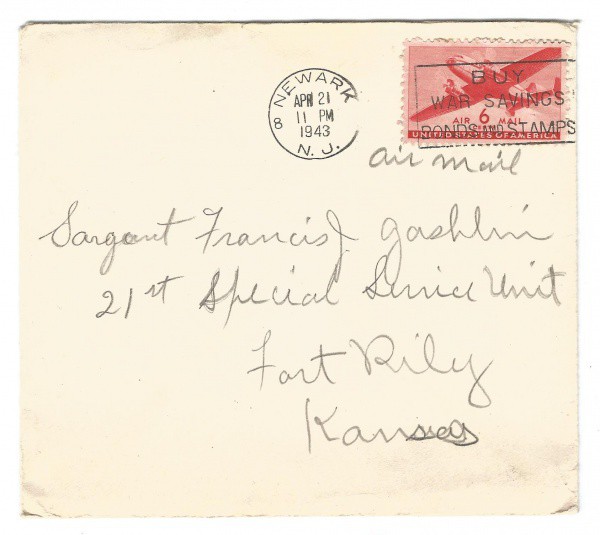 NEWARK
8
APR 21
11 PM
1943
N. J.
BUY
WAR SAVINGS
BONDS AND STAMPS
6
AIR MAIL
UNITED STATES OF AMERICA
air mail
Sargant Francis J. Gashlin
21st Special Service Unit
Fort Rily
Kansas